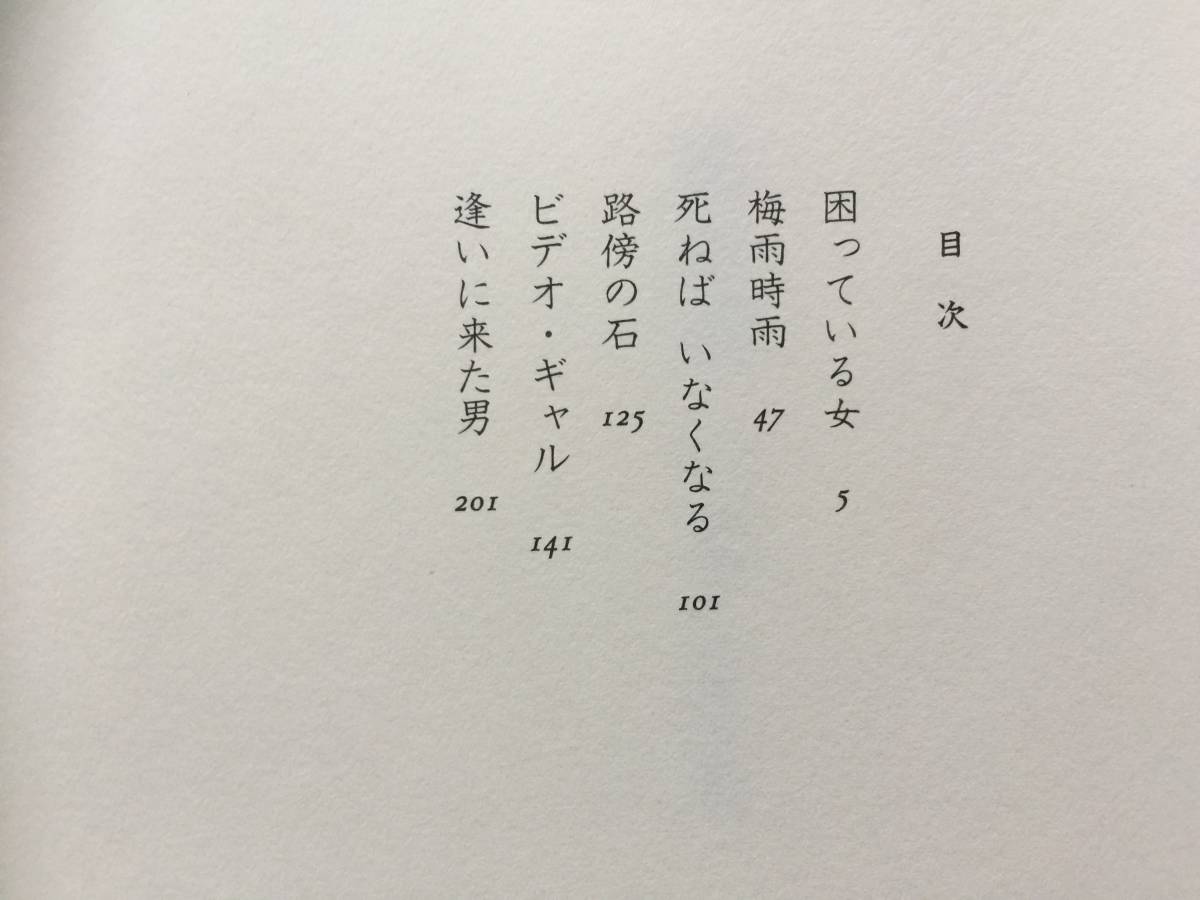 目次
困っている女 5
梅雨時雨 47
死ねば いなくなる 101
路傍の石 125
ビデオ・ギャル 141
逢いに来た男 201